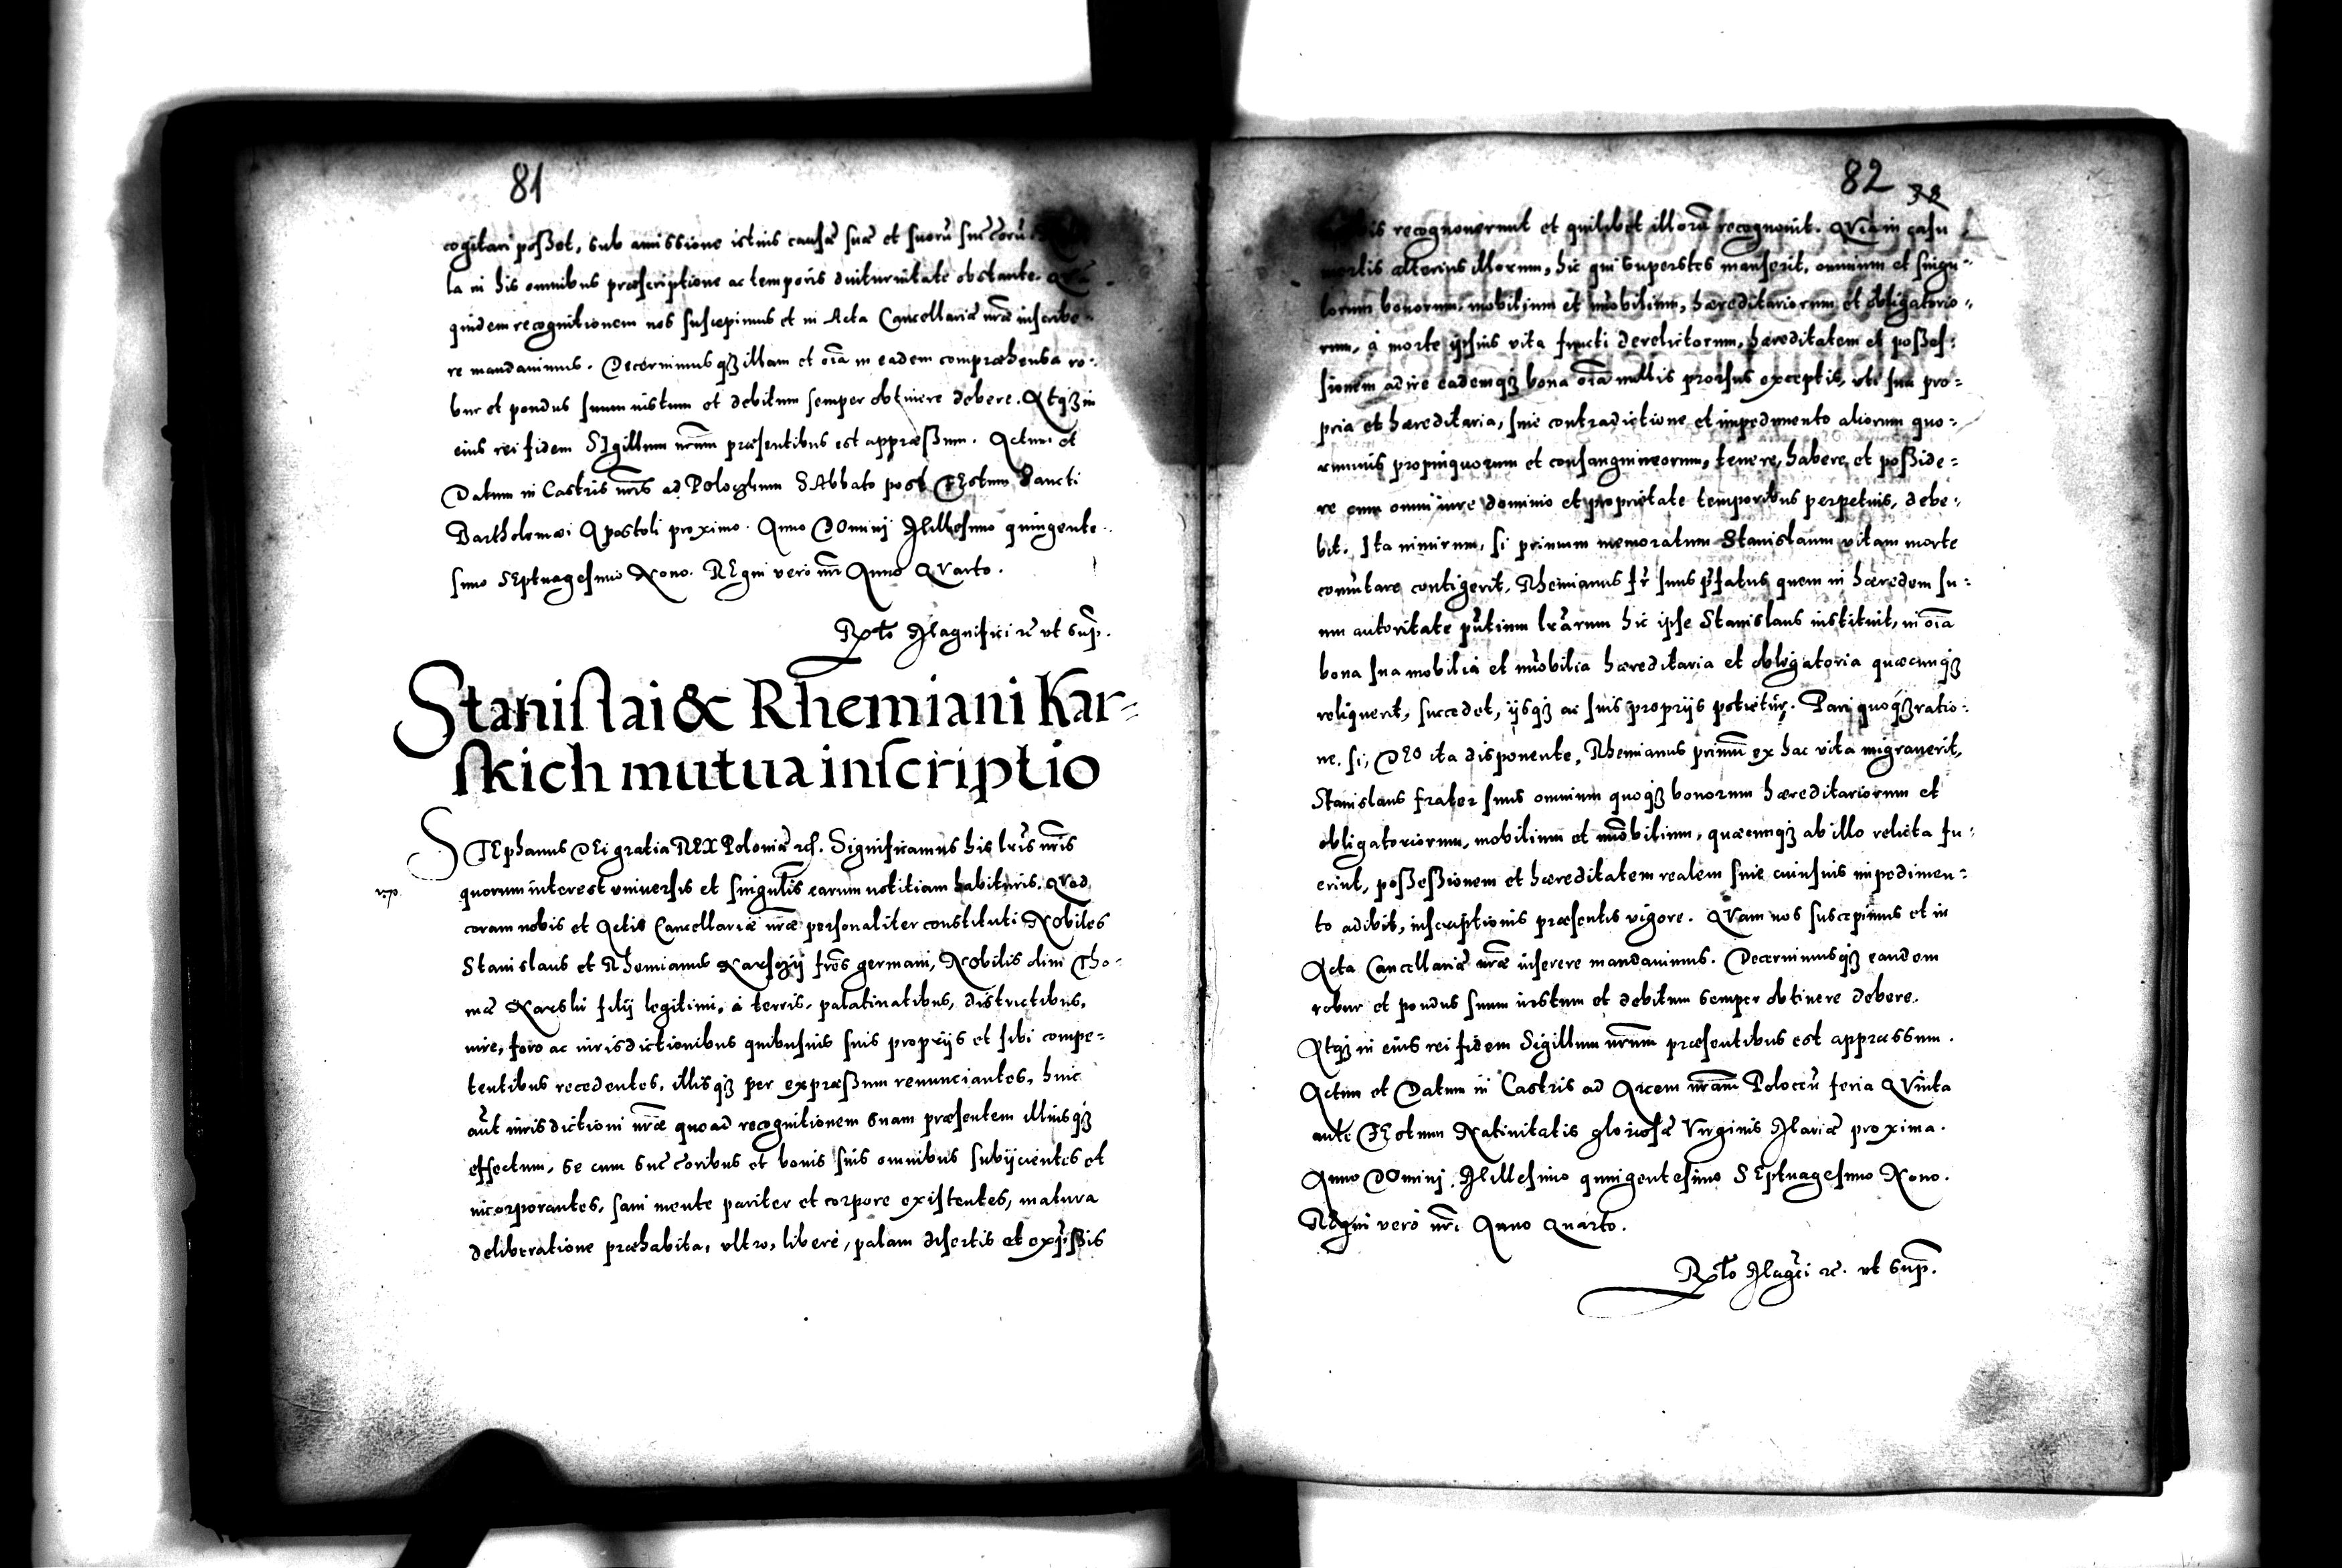 81
cogitari posset, sub amissione istius causæ suæ et suorũ succorũ
la in his omnibus præscriptione ac temporis diuturnitate obstante.
quidem recognitionem nos suscepimus et in Acta Cancellariæ nr̃æ inscribe-
re mandauimus. Decernimusq̃ illam et oĩa in eadem compræhensa ro-
bur et pondus suum iustum et debitum semper obtinere debere. Atq̃ in
eius rei fidem SIgillum nr̃um præsentibus est appræssum. Actum et
Datum in Castris nr̃is ad Poloczkum SAbbato post FEstum Sancti
Bartholomæi Apostoli proximo. Anno DOmini Millesimo quingente-
simo SEptuagesimo Nono. REgni vero nr̃i Anno QVarto.
Rel̃to Magnifici &c̃ vt sup̃.
Stanislai & Rhemiani Kar=
skich mutua inscriptio
STEphanus DEi gratia REX Poloniæ &c̃. Significamus his lr̃is nr̃is
quorum interest vniuersis et singulis earum notitiam habituris. QVod
coram nobis et Actis Cancellariæ nr̃æ personaliter constituti NObiles
Stanislaus et Rhemianus Karsczÿ fr̃es germani, NObilis olim Tho-
mæ Karski filÿ legitimi, à terris, palatinatibus, districtibus,
iure, foro ac iurisdictionibus quibusuis suis proprÿs et sibi compe=
tentibus recedentes, illisq̃ per expræssum renunciantes, huic
aũt iurisdictioni nr̃æ quoad recognitionem suam præsentem illiusq̃
effectum, se cum succ̃oribus et bonis suis omnibus subÿcientes et
incorporantes, sani mente pariter et corpore existentes, matura
deliberatione præhabita, vltro, liberè, palam disertis et exp̃ssis
82
38
recognouerunt et quilibet illorũ recognouit. QVia in casu
mortis alterius illorum, hic qui superstes manserit, omnium et singu-
lorum bonorum, mobilium et im̃obilium, hæreditariorum et obligatorio-
rum, à morte ipsius vita functi derelictorum, hæreditatem et posses-
sionem adire eademq̃ bona oĩa nullis prorsus exceptis, vti sua pro=
pria et hæreditaria, sine contradictione et impedimento aliorum quo=
rumuis propinquorum et consanguineorum, tenere, habere et posside=
re cum omni iure dominio et proprietate temporibus perpetuis, debe=
bit. Ita nimirum, si primum memoratum Stanislaum vitam morte
com̃utare contigerit, Rhemianus fr̃ suus p̃fatus quem in hæredem su=
um autoritate pñtium lr̃arum hic ipse Stanislaus instituit, in oĩa
bona sua mobilia et im̃obilia hæreditaria et obligatoria quæcunq̃
reliquerit, succedet, ÿsq̃ ac suis proprÿs potietur. Pari quoq̃ ratio-
ne, si, DEO ita disponente, Rhemianus primũ ex hac vita migrauerit,
Stanislaus frater suus omnium quoq̃ bonorum hæreditariorum et
obligatoriorum, mobilium et im̃obilium, quæcunq̃ ab illo relicta fu-
erint, possessionem et hæreditatem realem sine cuiusuis impedimen=
to adibit, inscriptionis præsentis vigore. QVam nos suscepimus et in
Acta Cancellariæ nr̃æ inserere mandauimus. Decernimusq̃ eandem
robur et pondus suum iustum et debitum semper obtinere debere.
Atq̃ in eius rei fidem Sigillum nr̃um præsentibus est appræssum.
Actum et Datum in Castris ad Arcem nr̃am Polocẽn feria QVinta
ante FEstum Natiuitatis gloriosæ Virginis Mariæ proxima.
Anno DOmini, Millesimo quingentesimo SEptuagesimo Nono.
REgni verò nr̃i Anno Quarto.
Rel̃to Magc̃i &c̃. vt sup̃.